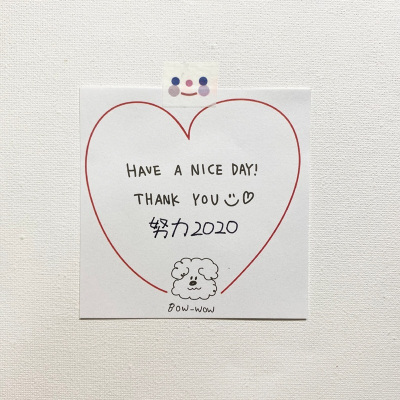 HAVE A NICE DAY!
THANK YOU
努力2020
BOW-WOW